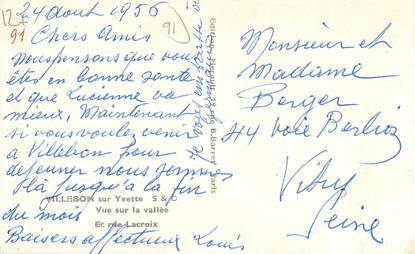 127
24 aout 1956
91
91
Chers Amis
nous pensons que vous
êtes en bonne santé
et que Lucienne va
mieux, Maintenant
si vous voulez venir
a Villebon pour
dejeuner nous sommes
là jusqu'a la fin
du mois
Baisers affectueux Louis
VILLEBON sur Yvette S & O
Vue sur la vallée
Et rue Lacroix
Monsieur et
Madame
Berger
44 Voie Berlioz
Vitry
Seine